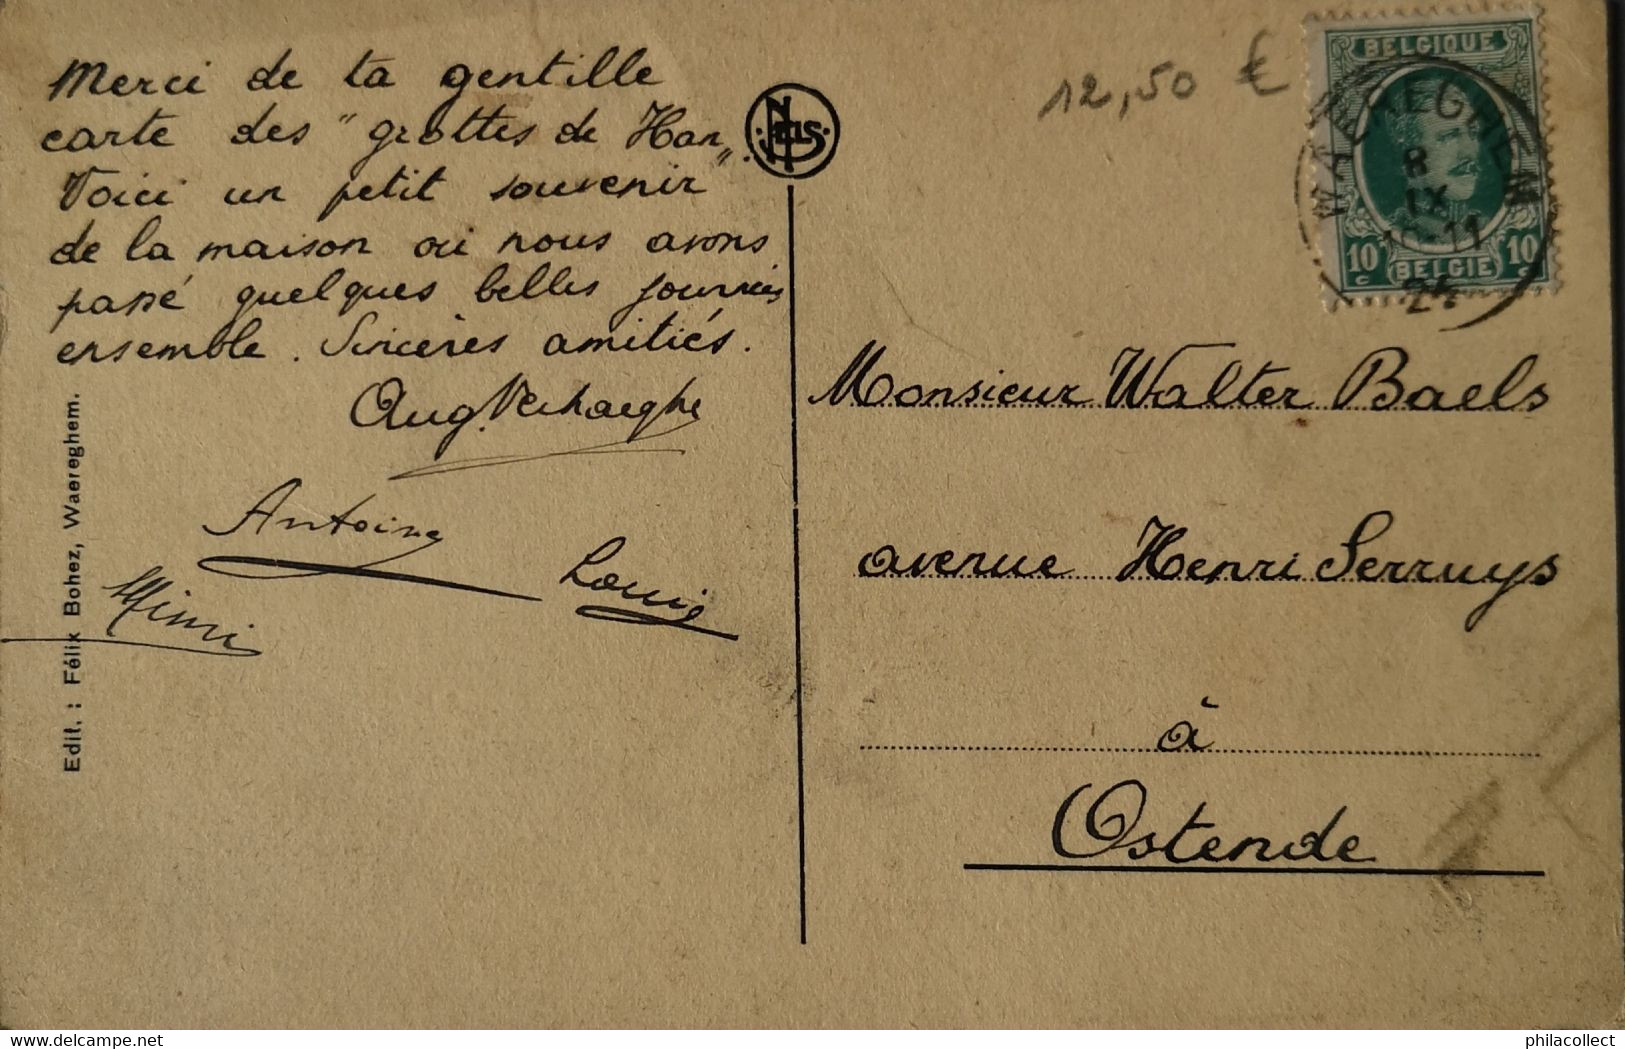 Merci de ta gentille
carte des "grottes de Han„.
Voici un petit souvenir
de la maison où nous avons
passé quelques belles journées
ensemble. Sincères amitiés.
Aug. Verhaeghe
Antoine
Louis
Mimi
Edit. : Félix Bohez, Waereghem.
NELS
12,50 €
BELGIQUE
10 c 10 c
BELGIE
WAEREGHEM
8
IX
10-11
Monsieur Walter Baels
avenue Henri Serruys
à
Ostende
www.delcampe.net
philacollect